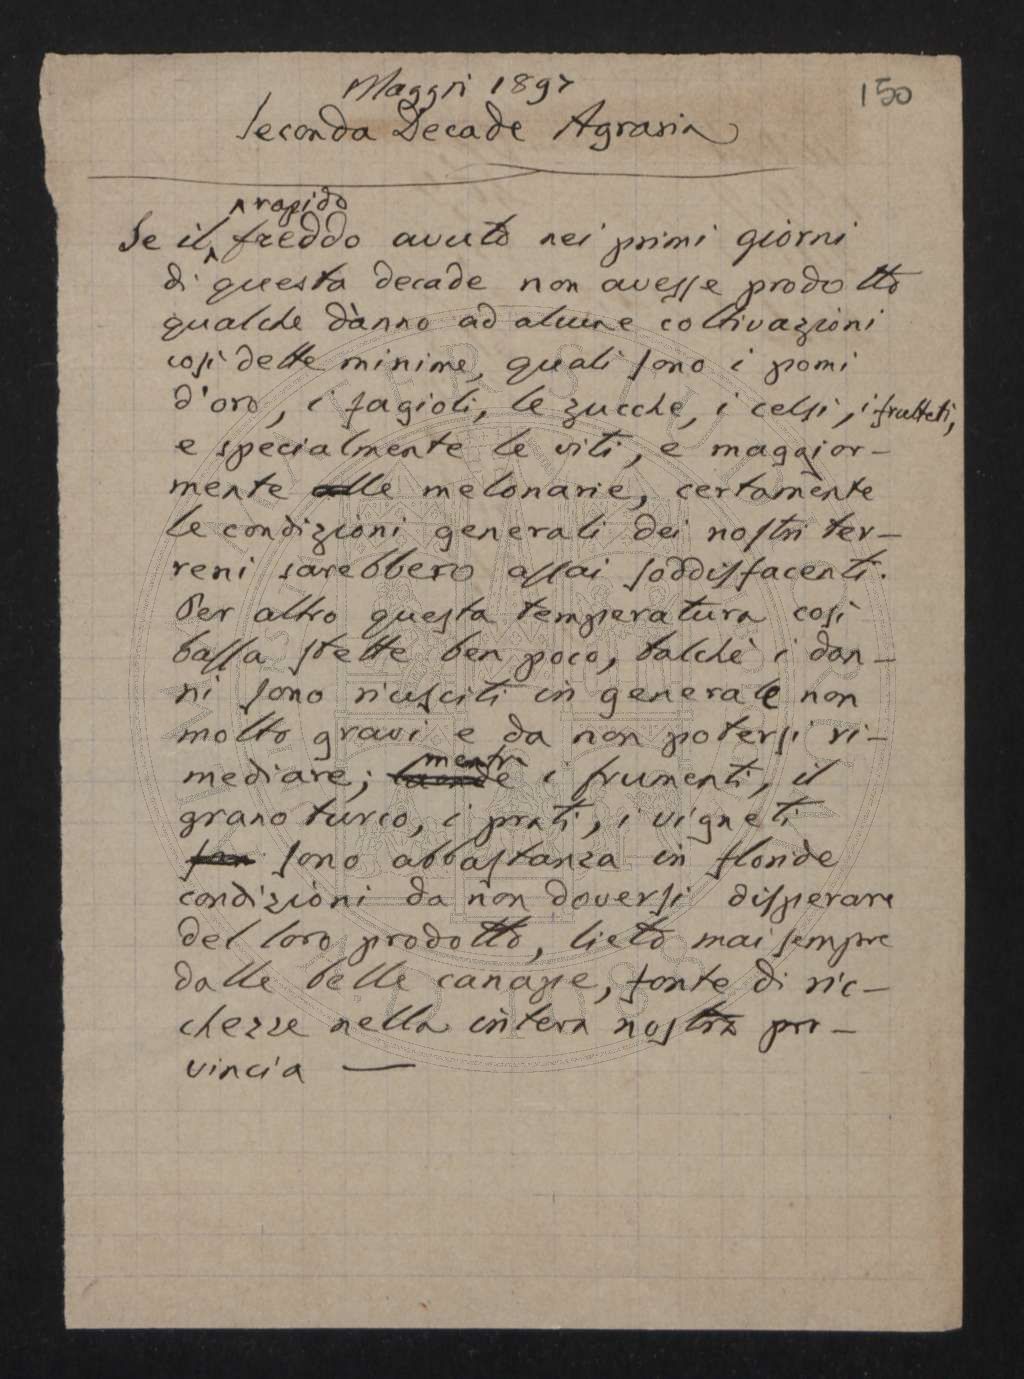 Maggio 1897
150
Seconda Decade Agraria
rapido
Se il freddo avuto nei primi giorni
di questa decade non avesse prodotto
qualche dànno ad alcune coltivazioni
così dette minime, quali sono i pomi
d'oro, i fagioli, le zucche, i celsi, i frutteti,
e specialmente le viti, e maggior-
mente alle melonarie, certamente
le condizioni generali dei nostri ter-
reni sarebbero assai soddisfacenti.
Per altro questa temperatura così
bassa stette ben poco, talchè i dan-
ni sono riusciti in generale non
molto gravi e da non potersi ri-
mentre
mediare; i frumenti, il
grano turco, i prati, i vigneti
sono abbastanza in floride
condizioni da non doversi disperare
del loro prodotto, lieto mai sempre
dalle belle canape, fonte di ric-
chezze nella intera nostra pro-
vincia —